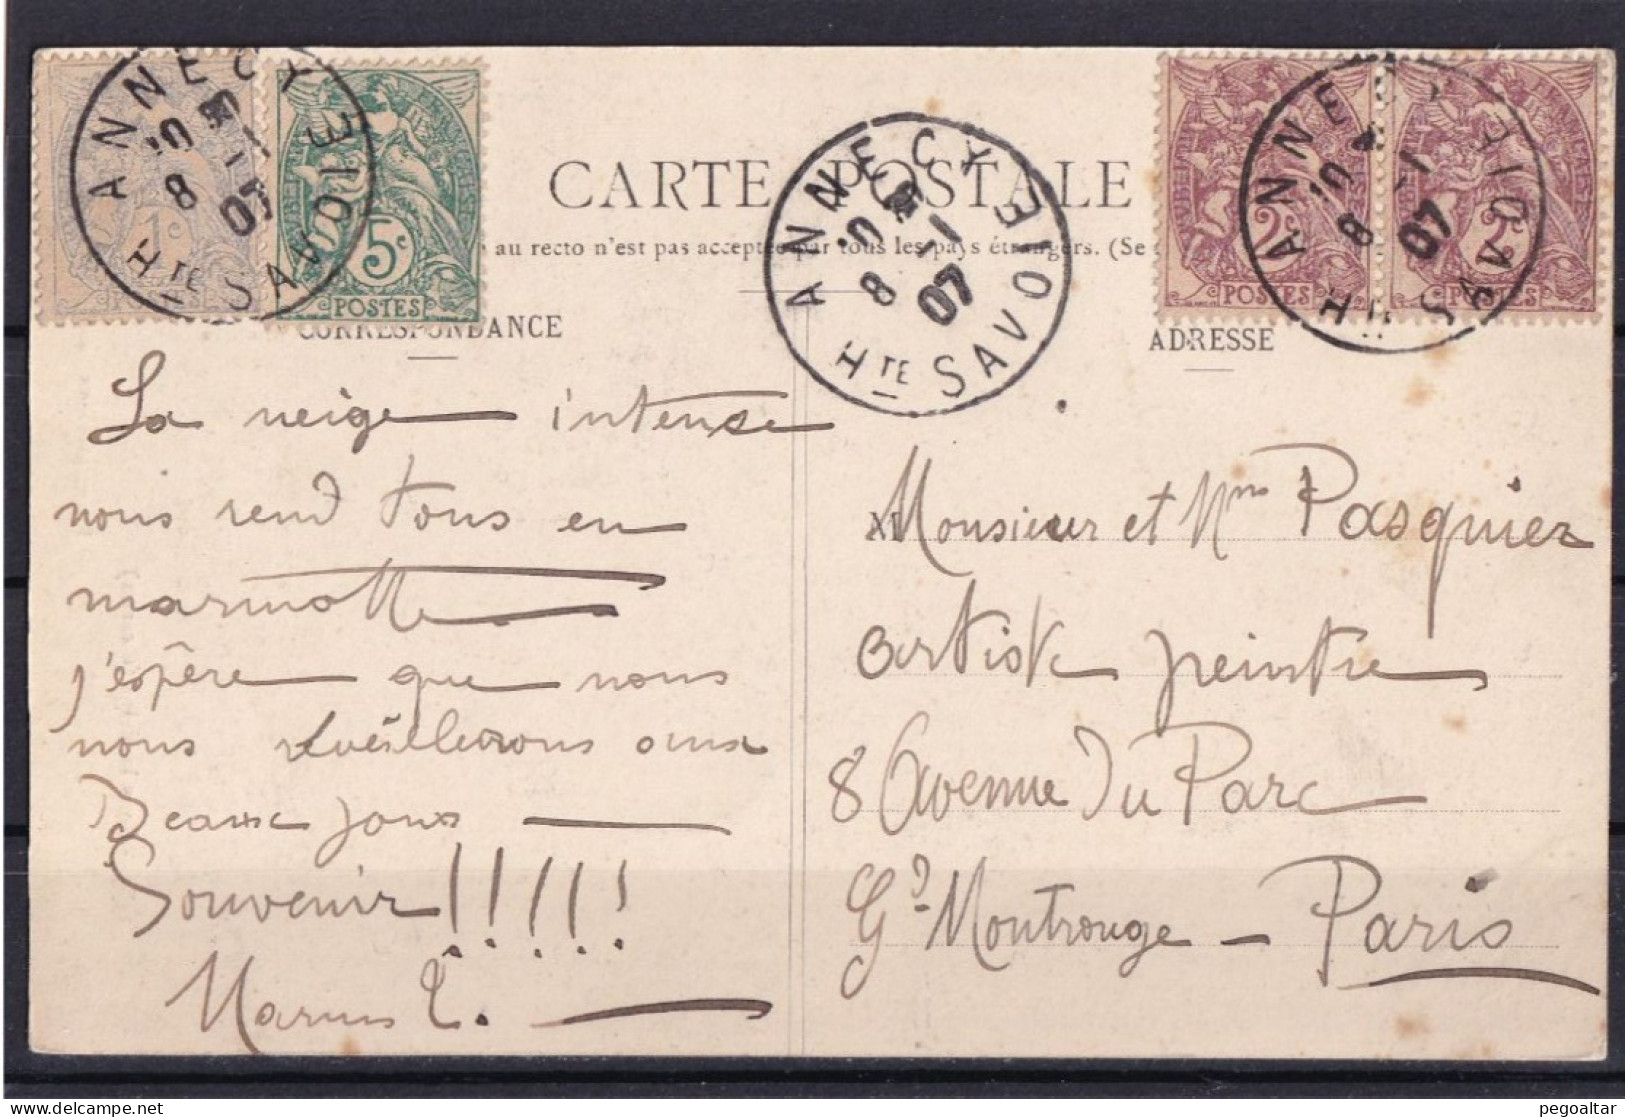 CARTE POSTALE
au recto n'est pas acceptée par tous les pays étrangers. (Se
CORRESPONDANCE
ADRESSE
ANNECY
Hte SAVOIE
10
8 -1
07
ANNECY
Hte SAVOIE
10
8 -1
07
ANNECY
Hte SAVOIE
10
8 -1
07
1c
5c
POSTES
2c
POSTES
2c
POSTES
La neige intense
nous rend tous en
marmotte
j'espère que nous
nous réveillerons aux
Beaux jours
Souvenir !!!!!
Marius L.
Monsieur et Mme Pasquier
artiste peintre
8 avenue Du Parc
Gd Montrouge - Paris
pegoaltar